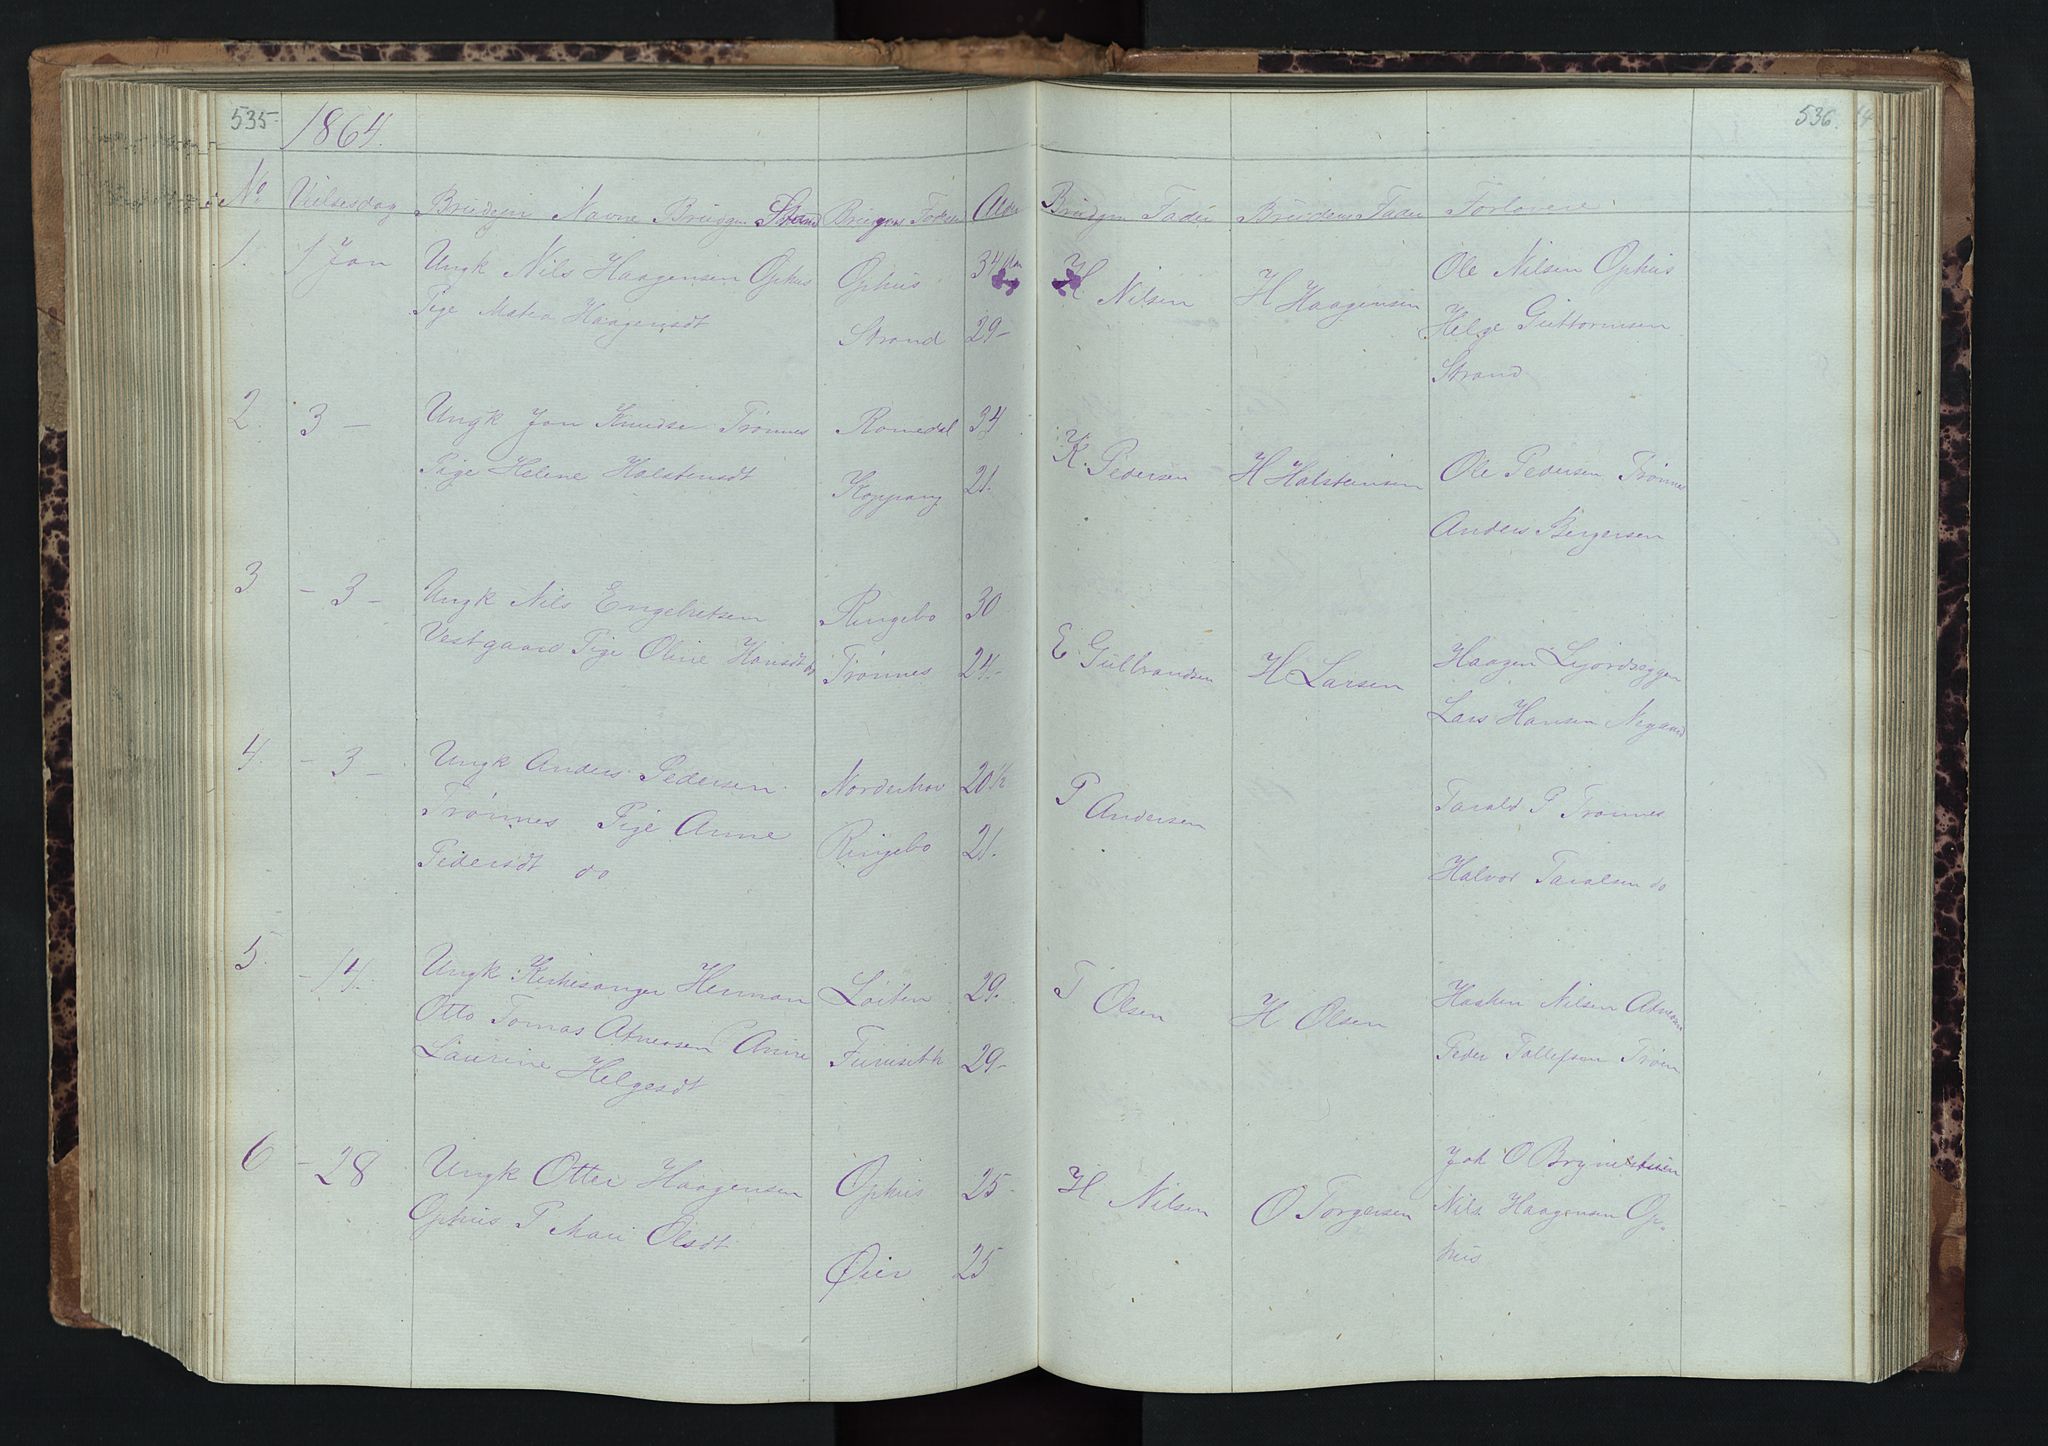 535
1864.
536.
No Vielsesdag Brudgm Navne Brudgm Stand Brudgms Fødsted Alder Brudgm Fader Brudens Fader Forlovere
1. 1 Jan Ungk Nils Haagensen Ophus Ophus 34 H Nilsen H Haagensen Ole Nilsen Ophus
Pige Haagensdt Strand 29 Helge Guttormsen
Strand
2. 3 Ungk Jon Knudsen Trønnes Romedal 34 K. Pedersen H Halstensen Ole Pedersen Trønnes
Pige Helene Halstensdt Koppang 21. Anders Bergersen
3 - 3 - Ungk Nils Engebretsen Ringebo 30 E Gulbrandsen H Larsen Haagen
Vestgaard Pige Oline Hansdt do Trønnes 24.- Lars Hansen
4. - 3 - Ungk Anders Pedersen Norderhov 20½ P Andersen Tarald P Trønnes
Trønnes Pige Anne Ringebo 21. Halvor Taralsen do
Pedersdt do
5. - 14. Ungk Kirkesanger Herman Løiten 29. T Olsen H Olsen Nilsen
Otto Tomas Atneosen P Anne Furuseth 29- Peder Tollefsen Trøen
Laurine Helgesdt
6 - 28 Ungk Otter Haagensen Ophus 25- H Nilsen O Torgersen Joh O
Ophus P Mari Olsdt Øier 25 Nils Haagensen Op-
hus